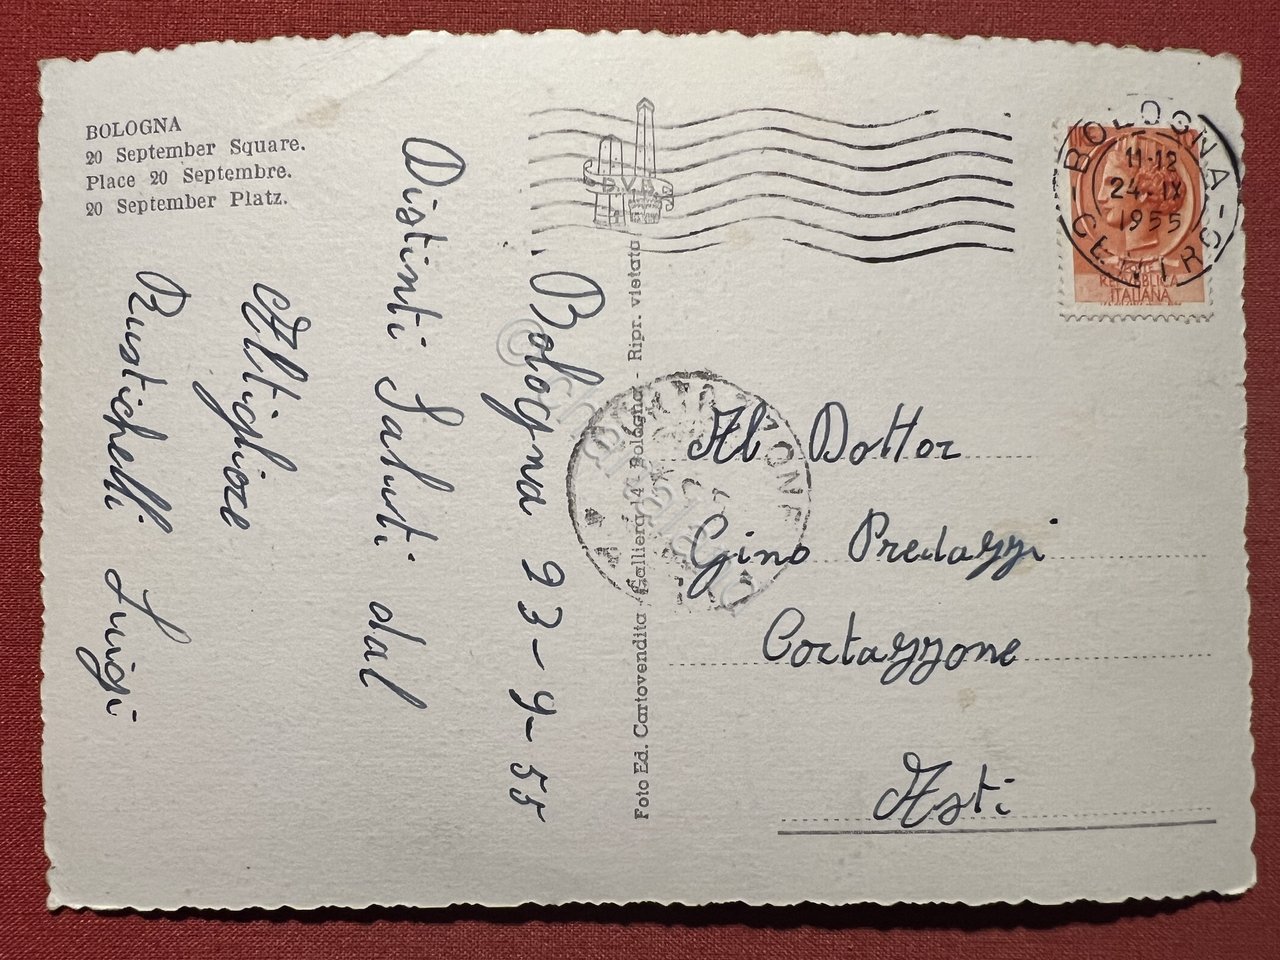 BOLOGNA
20 September Square.
Place 20 Septembre.
20 September Platz.
Bologna 23-9-55
Distinti Saluti dal
Altigliere
Rustichelli Luigi
Foto Ed. Cartovendita Galliera 14 Bologna - Ripr. vietata
BOLOGNA - CENTRO
11-12
24. IX
1955
POSTE
REPUBBLICA
ITALIANA
Al Dottor
Gino Predazzi
Cortazzone
Asti